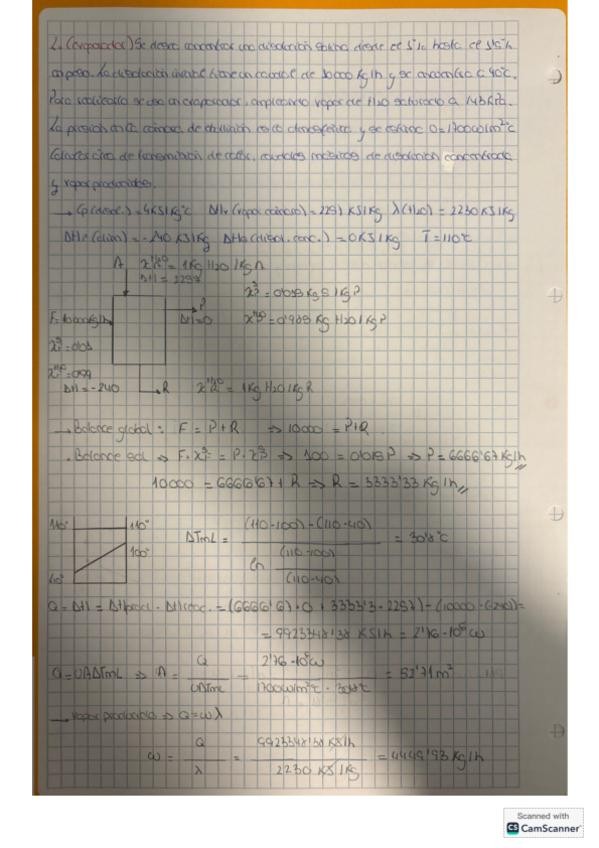 2. (evaporador) Se desea concentrar una disolución salina desde el 1% hasta el 1'5%
en peso. La disolución inicial tiene un caudal de 10000 Kg/h y se encuentra a 40ºC.
Para realizarlo se usa un evaporador, empleando vapor de H2O saturado a 143KPa.
La presión en la cámara de es la atmosférica y se estima U=1700W/m²ºC
Calcular área de transmisión de calor, caudales másicos de disolución concentrada
y vapor producidos.
→ Cp(disol.) = 4KJ/KgºC ΔHv (vapor) = 2257 KJ/Kg λ(H2O) = 2230 KJ/Kg
ΔHF (alim) = -240 KJ/Kg ΔHP (disol. conc.) = 0KJ/Kg T = 110ºC
A 1Kg H2O/Kg A
ΔH = 2257
F = 10000Kg/h P
ΔH=0
0'015 Kg S/Kg P
0'985 Kg H2O/Kg P
0'01
0'99
ΔH = -240
R 1 Kg H2O/Kg R
→ Balance global: F = P+R ⇒ 10000 = P+R
. Balance sal ⇒ F· = P· ⇒ 100 = 0'015P ⇒ P = 6666'67 Kg/h
10000 = 6666'67 + R ⇒ R = 3333'33 Kg/h
110º 110º
100º
40º
ΔTmL = (110-100) - (110-40) / ln (110-100) / (110-40) = 30'8ºC
Q = ΔH = ΔHprod. - ΔHreac. = (6666'67 · 0 + 3333'3 · 2257) - (10000 · (-240)) =
= 9923348'38 KJ/h = 2'76·10⁶ W
Q = UAΔTmL ⇒ A = Q / UΔTmL = 2'76·10⁶ W / 1700W/m²ºC · 30'8ºC = 52'71 m²
→ vapor producido ⇒ Q = wλ
w = Q / λ = 9923348'38 KJ/h / 2230 KJ/Kg = 4449'93 Kg/h
Scanned with
CS CamScanner